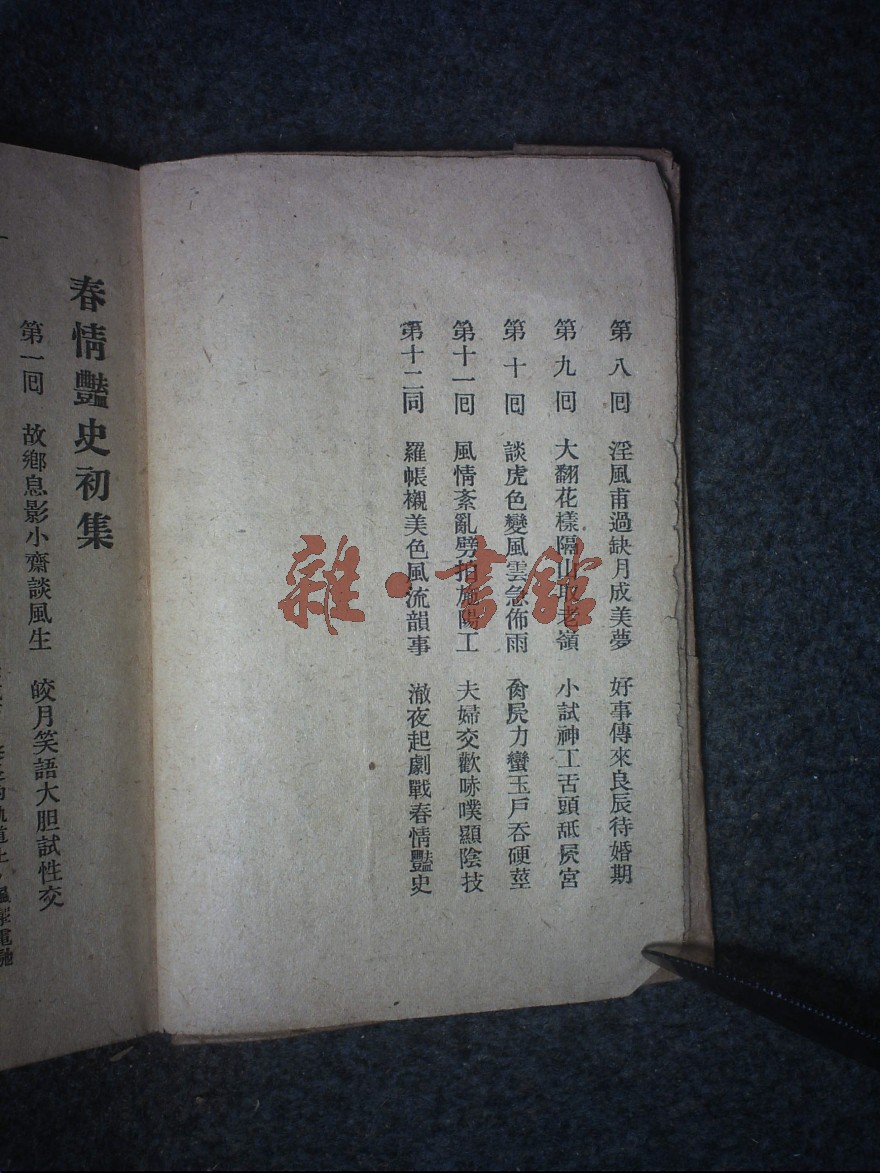 第八回 淫風甫過缺月成美夢 好事傳來良辰待婚期
第九回 大翻花樣隔山取老嶺 小試神工舌頭舐屄宮
第十回 談虎色變風雲急佈雨 肏屄力蠻玉戶吞硬莖
第十一回 風情紊亂劈拍施陽工 夫婦交歡哧噗顯陰技
第十二同 羅帳襯美色風流韻事 澈夜起劇戰春情豔史
春情豔史初集
第一回 故鄉息影小齋談風生 皎月笑語大胆試性交
雜·書館